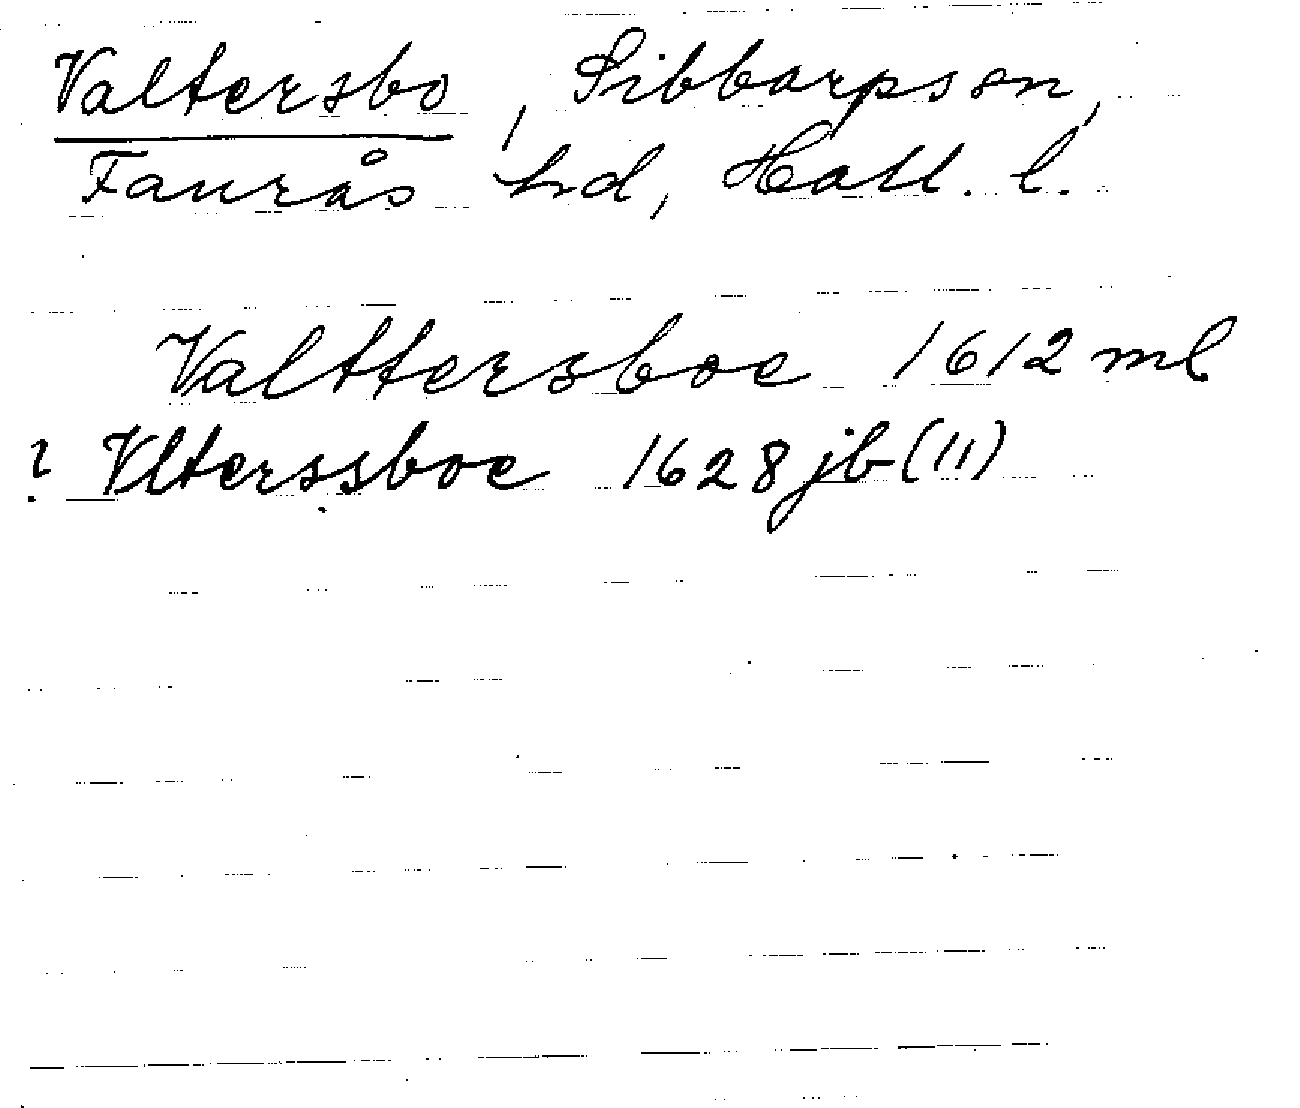 Valtersbo, Sibbarps sn,
Faurås hd, Hall. l.
Valttersboe 1612 ml
? Vlterssboe 1628 jb (11)